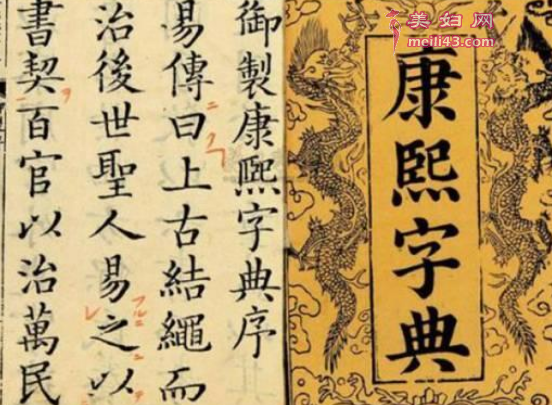 康熙字典
御製康熙字典序
易傳曰上古結繩而
治後世聖人易之以
書契百官以治萬民
美妇网
meili43.com